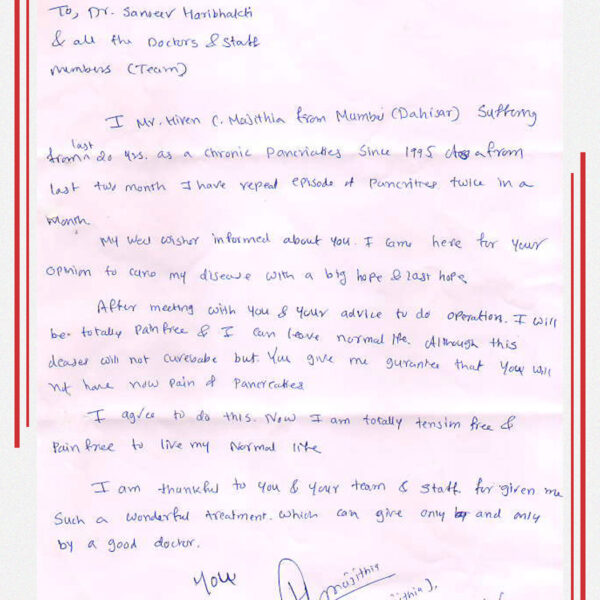 To, Dr. Sanjeev Haribhakti
& all the Doctors & Staff
members (Team)
I Mr. Hiren C. Majithia from Mumbai (Dahisar) Suffering
from last 20 yrs. as a chronic Pancriaties Since 1995 & a from
last two month I have repeal episode of Pancrities twice in a
month
My well wisher informed about you. I came here for your
opinion to care my disease with a big hope & last hope
After meeting with you & your advice to do operation. I will
be totally pain free & I can leave normal life. Although this
deases will not cureabe but you give me gurantee that you will
not have now pain of pancreaties
I agree to do this. Now I am totally tension free &
pain free to live my normal life
I am thankful to you & your team & staff for given me
Such a wonderful treatment. which can give only and only
by a good doctor.
Your
majithia